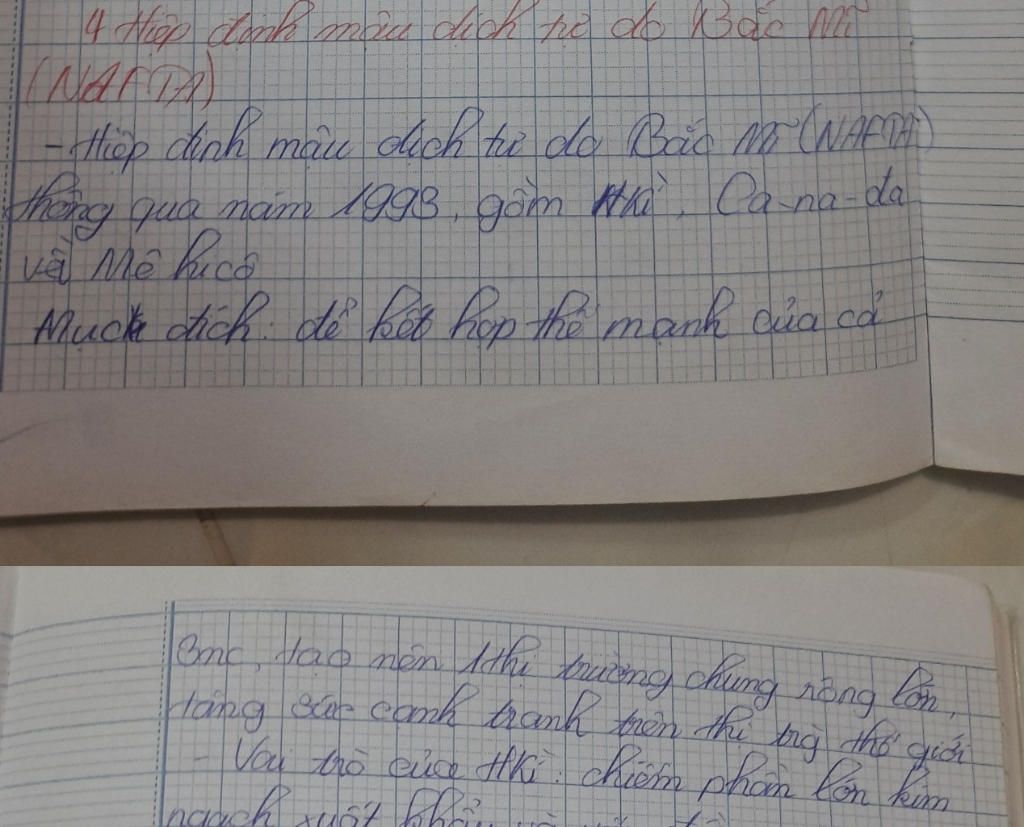 4 Hiệp định mậu dịch tự do Bắc Mĩ
(NAFTA)
- Hiệp định mậu dịch tự do Bắc Mĩ (NAFTA)
thông qua năm 1993, gồm HKì, Ca-na-da
và Mê hicô
Mục đích: để kết hợp thế mạnh của cả
3nc, tạo nên 1 thị trường chung rộng lớn,
tăng sức cạnh tranh trên thị trg thế giới
- Vai trò của HKì: chiếm phần lớn kim
ngạch xuất khẩu